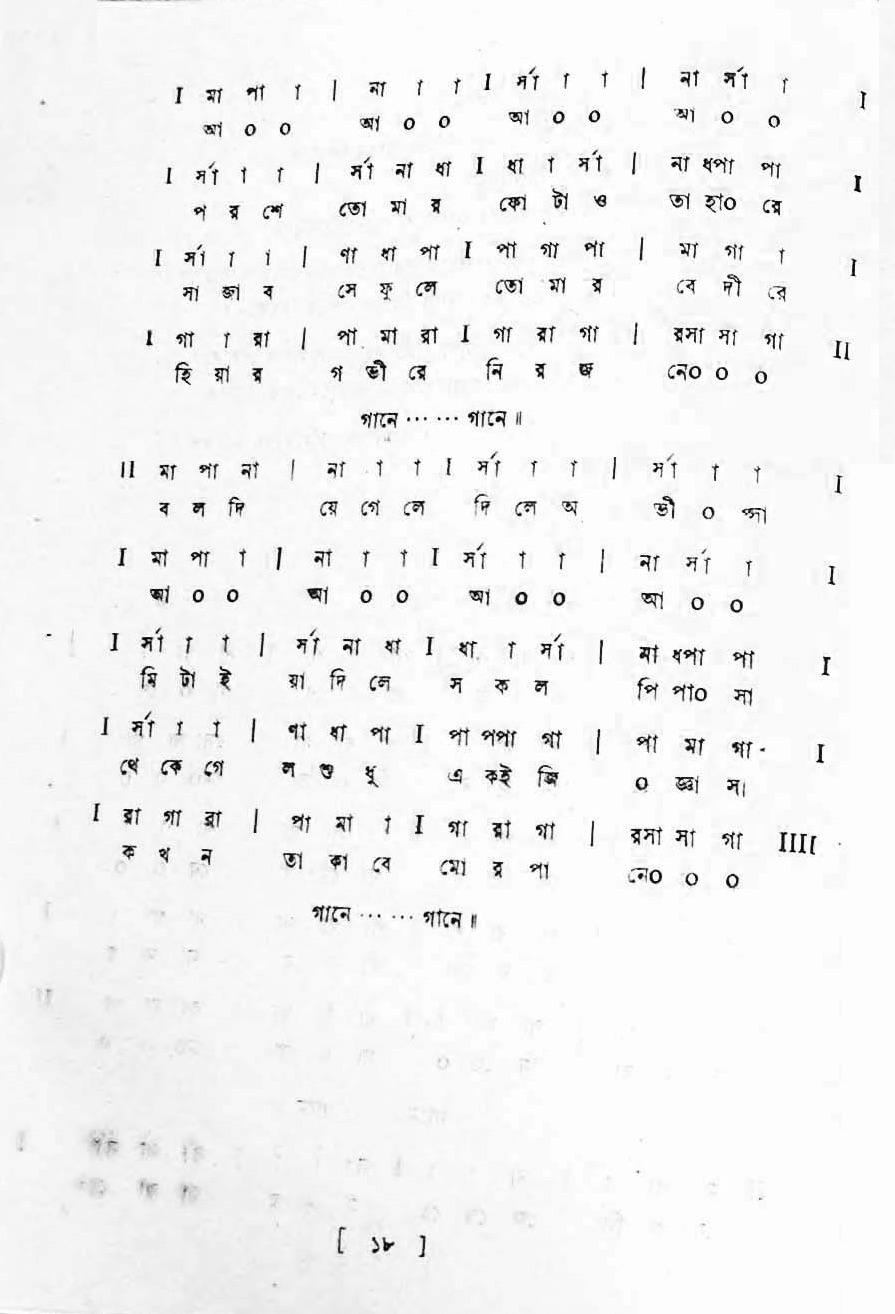 I মা পা া | না া া I র্সা া া | না র্সা া I
আ ০ ০ আ ০ ০ আ ০ ০ আ ০ ০
I র্সা া া | র্সা না ধা I ধা া র্সা | না ধপা পা I
প র শে তো মা র ফো টা ও তা হা০ রে
I র্সা া া | ণা ধা পা I পা গা পা | মা গা া I
সা জা ব সে ফু লে তো মা র বে দী রে
I গা া রা | পা মা রা I গা রা গা | রসা সা গা II
হি য়া র গ ভী রে নি র জ নে০ ০ ০
গানে ··· ··· গানে॥
II মা পা না | না া া I র্সা া া | র্সা া া I
ব ল দি য়ে গে লে দি লে অ ভী ০ প্সা
I মা পা া | না া া I র্সা া া | না র্সা া I
আ ০ ০ আ ০ ০ আ ০ ০ আ ০ ০
I র্সা া া | র্সা না ধা I ধা া র্সা | না ধপা পা I
মি টা ই য়া দি লে স ক ল পি পা০ সা
I র্সা া া | ণা ধা পা I পা পপা গা | পা মা গা - I
থে কে গে ল শু ধু এ কই জি ০ জ্ঞা সা
I রা গা রা | পা মা া I গা রা গা | রসা সা গা IIII
ক খ ন তা কা বে মো র পা নে০ ০ ০
গানে ··· ··· গানে॥
[ ১৮ ]